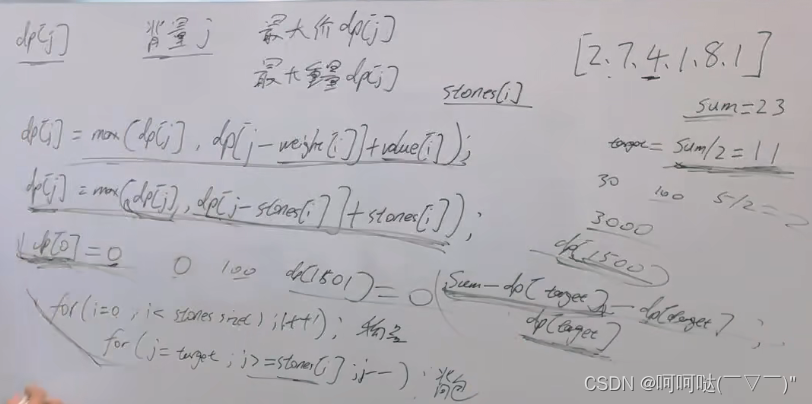 dp[j] 背量 j 最大价 dp[j]
最大重量 dp[j]
[2.7.4.1.8.1]
stones[i]
sum=23
dp[j] = max(dp[j], dp[j-weight[i]]+value[i]);
target= sum/2=11
30 100 5/2=2
dp[j] = max(dp[j], dp[j-stones[i]]+stones[i]);
3000
dp[1500]
dp[0]=0 0 100 dp[1501]=0
(sum-dp[target])-dp[target];
dp[target]
for(i=0, i<stones size); i++); 物量
for(j=target; j>=stones[i]; j--); 背包
CSDN @呵呵哒(￣▽￣)"